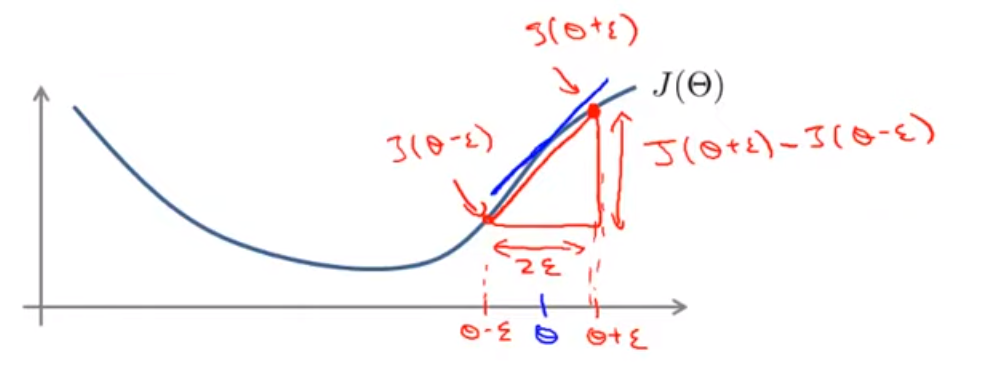 J(θ+ε)
J(Θ)
J(θ-ε)
J(θ+ε)-J(θ-ε)
2ε
θ-ε θ θ+ε